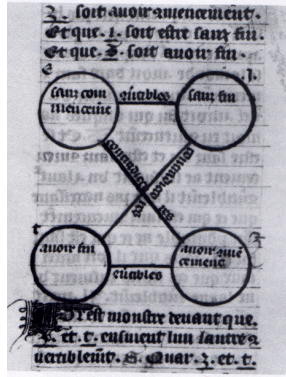 .ꝫ. soit avoir amencement.
Et que .l. soit estre sanz fin.
Et que .ꝫ. soit avoir fin.
e
.l.
sanz com
mencemēt
ꝯuables
sanz fin
contradictoires
contradictoires
t
avoir fin
ꝯuables
avoir amē
cement
.ꝫ.
Or est monstre devant que.
.ꝫ. et .t. ensuient lun lautre ꝯ
uertiblemēt. S. Quar .ꝫ. et .t.